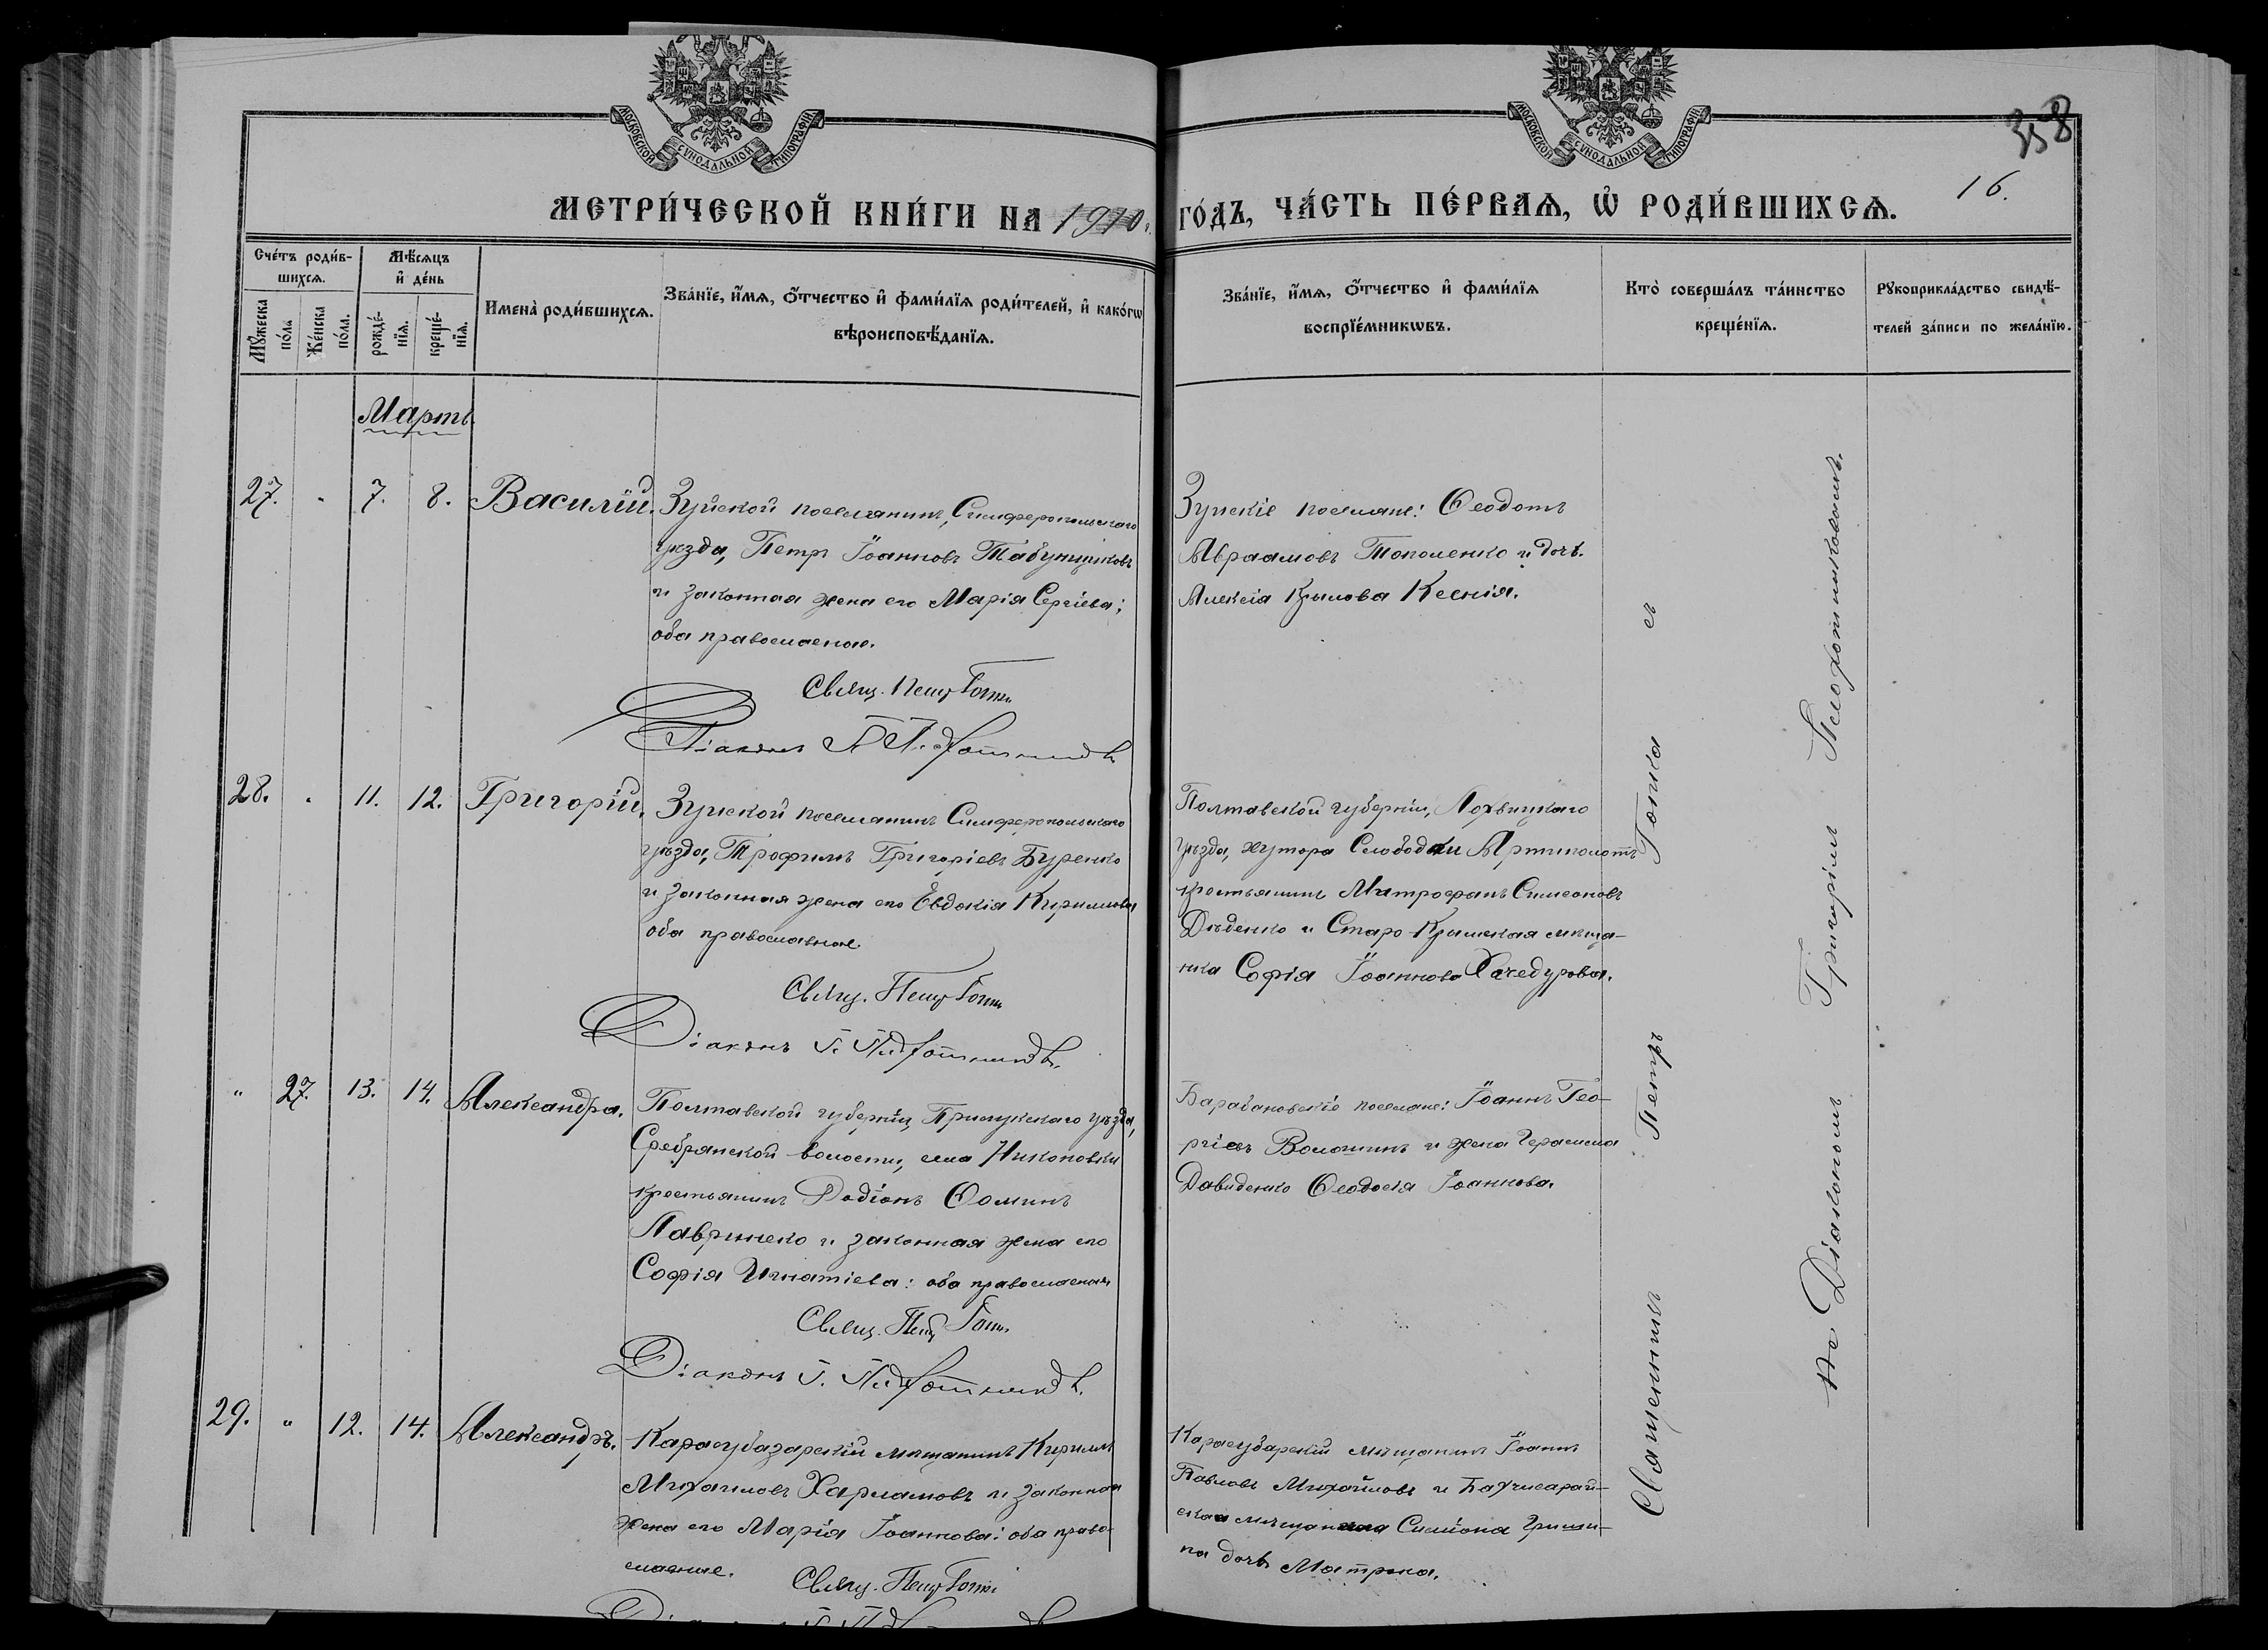 МОСКОВСКОЙ СѴНОДАЛЬНОЙ ТИПОГРАФІИ
МОСКОВСКОЙ СѴНОДАЛЬНОЙ ТИПОГРАФІИ
358
16.
МЕТРИ́ЧЕСКОЙ КНИ́ГИ НА 1910 г.
ГО́ДЪ, ЧА́СТЬ ПЕ́РВАѦ, Ѡ҆ РОДИ́ВШИХСѦ.
Сче́тъ роди́в-
шихсѧ.
Мѣ́сѧцъ
и҆ де́нь
Мꙋ́жеска
по́ла
Же́нска
по́ла.
рожде́-
нїѧ.
креще́-
нїѧ.
Имена̀ роди́вшихсѧ.
Зва́нїе, и҆́мѧ, ѻ҆́тчество и҆ фами́лїѧ роди́телей, и҆ како́гѡ
вѣроисповѣ́данїѧ.
Зва́нїе, и҆́мѧ, ѻ҆́тчество и҆ фами́лїѧ
воспрїе́мникѡвъ.
Кто̀ соверша́лъ та́инство
креще́нїѧ.
Рꙋкоприкла́дство свидѣ́-
телей за́писи по жела́нїю.
Мартъ.
27. " 7. 8. Василій.
Зуйской поселянинъ, Симферопольскаго
уѣзда, Петръ Іоанновъ Табунщиковъ
и законная жена его Марія Сергіева;
оба православные.
Свящ. Петр
Діаконъ Г. Плохотниковъ
Зуйскіе поселяне: Ѳеодотъ
Авраамовъ Тополенко и дочь
Алексія Крылова Ксенія.
28. " 11. 12. Григорій.
Зуйской поселянинъ Симферопольскаго
уѣзда, Трофимъ Григоріевъ Буренко
и законная жена его Евдокія Кириллова
оба православные
Свящ. Петр
Діаконъ Г. Плохотниковъ.
Полтавской губерніи, Лохвицкаго
уѣзда, хутора Слободки Артополотъ
крестьянинъ Митрофанъ Симеоновъ
Дѣденко и Старо-Крымская мѣща-
нка Софія Іоаннова Хачедурова.
" 27. 13. 14. Александра.
Полтавской губерніи, Прилукскаго уѣзда,
Сребрянской волости, села Никоновки
крестьянинъ Родіонъ Ѳоминъ
Лавриненко и законная жена его
Софія Игнатіева: оба православные
Свящ. Петр
Діаконъ Г. Плохотниковъ.
Барабановскіе поселяне: Іоаннъ Гео-
ргіевъ Волошинъ и жена Герасима
Давиденко Ѳеодосія Іоаннова.
29. " 12. 14. Александръ.
Карасубазарскій мѣщанинъ Кириллъ
Михаиловъ Харламовъ и законная
жена его Марія Іоаннова: оба право-
славные.
Свящ. Петр
Карасубарскій мѣщанинъ Іоаннъ
Павловъ Михайловъ и Бахчисарай-
скаго мѣщанина Симеона Гриши-
на дочь Матрона.
Священникъ Петръ с
по Діакономъ Григоріемъ Плохотниковымъ.